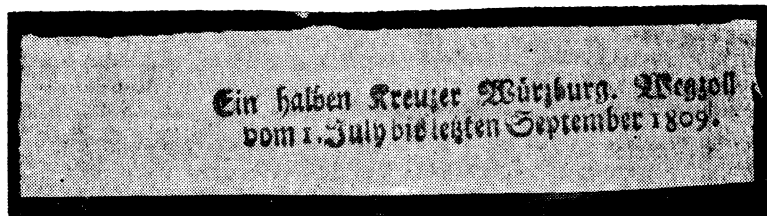 Ein halben Kreuzer Würzburg. Wegzoll
vom 1. July bis letzten September 1809.